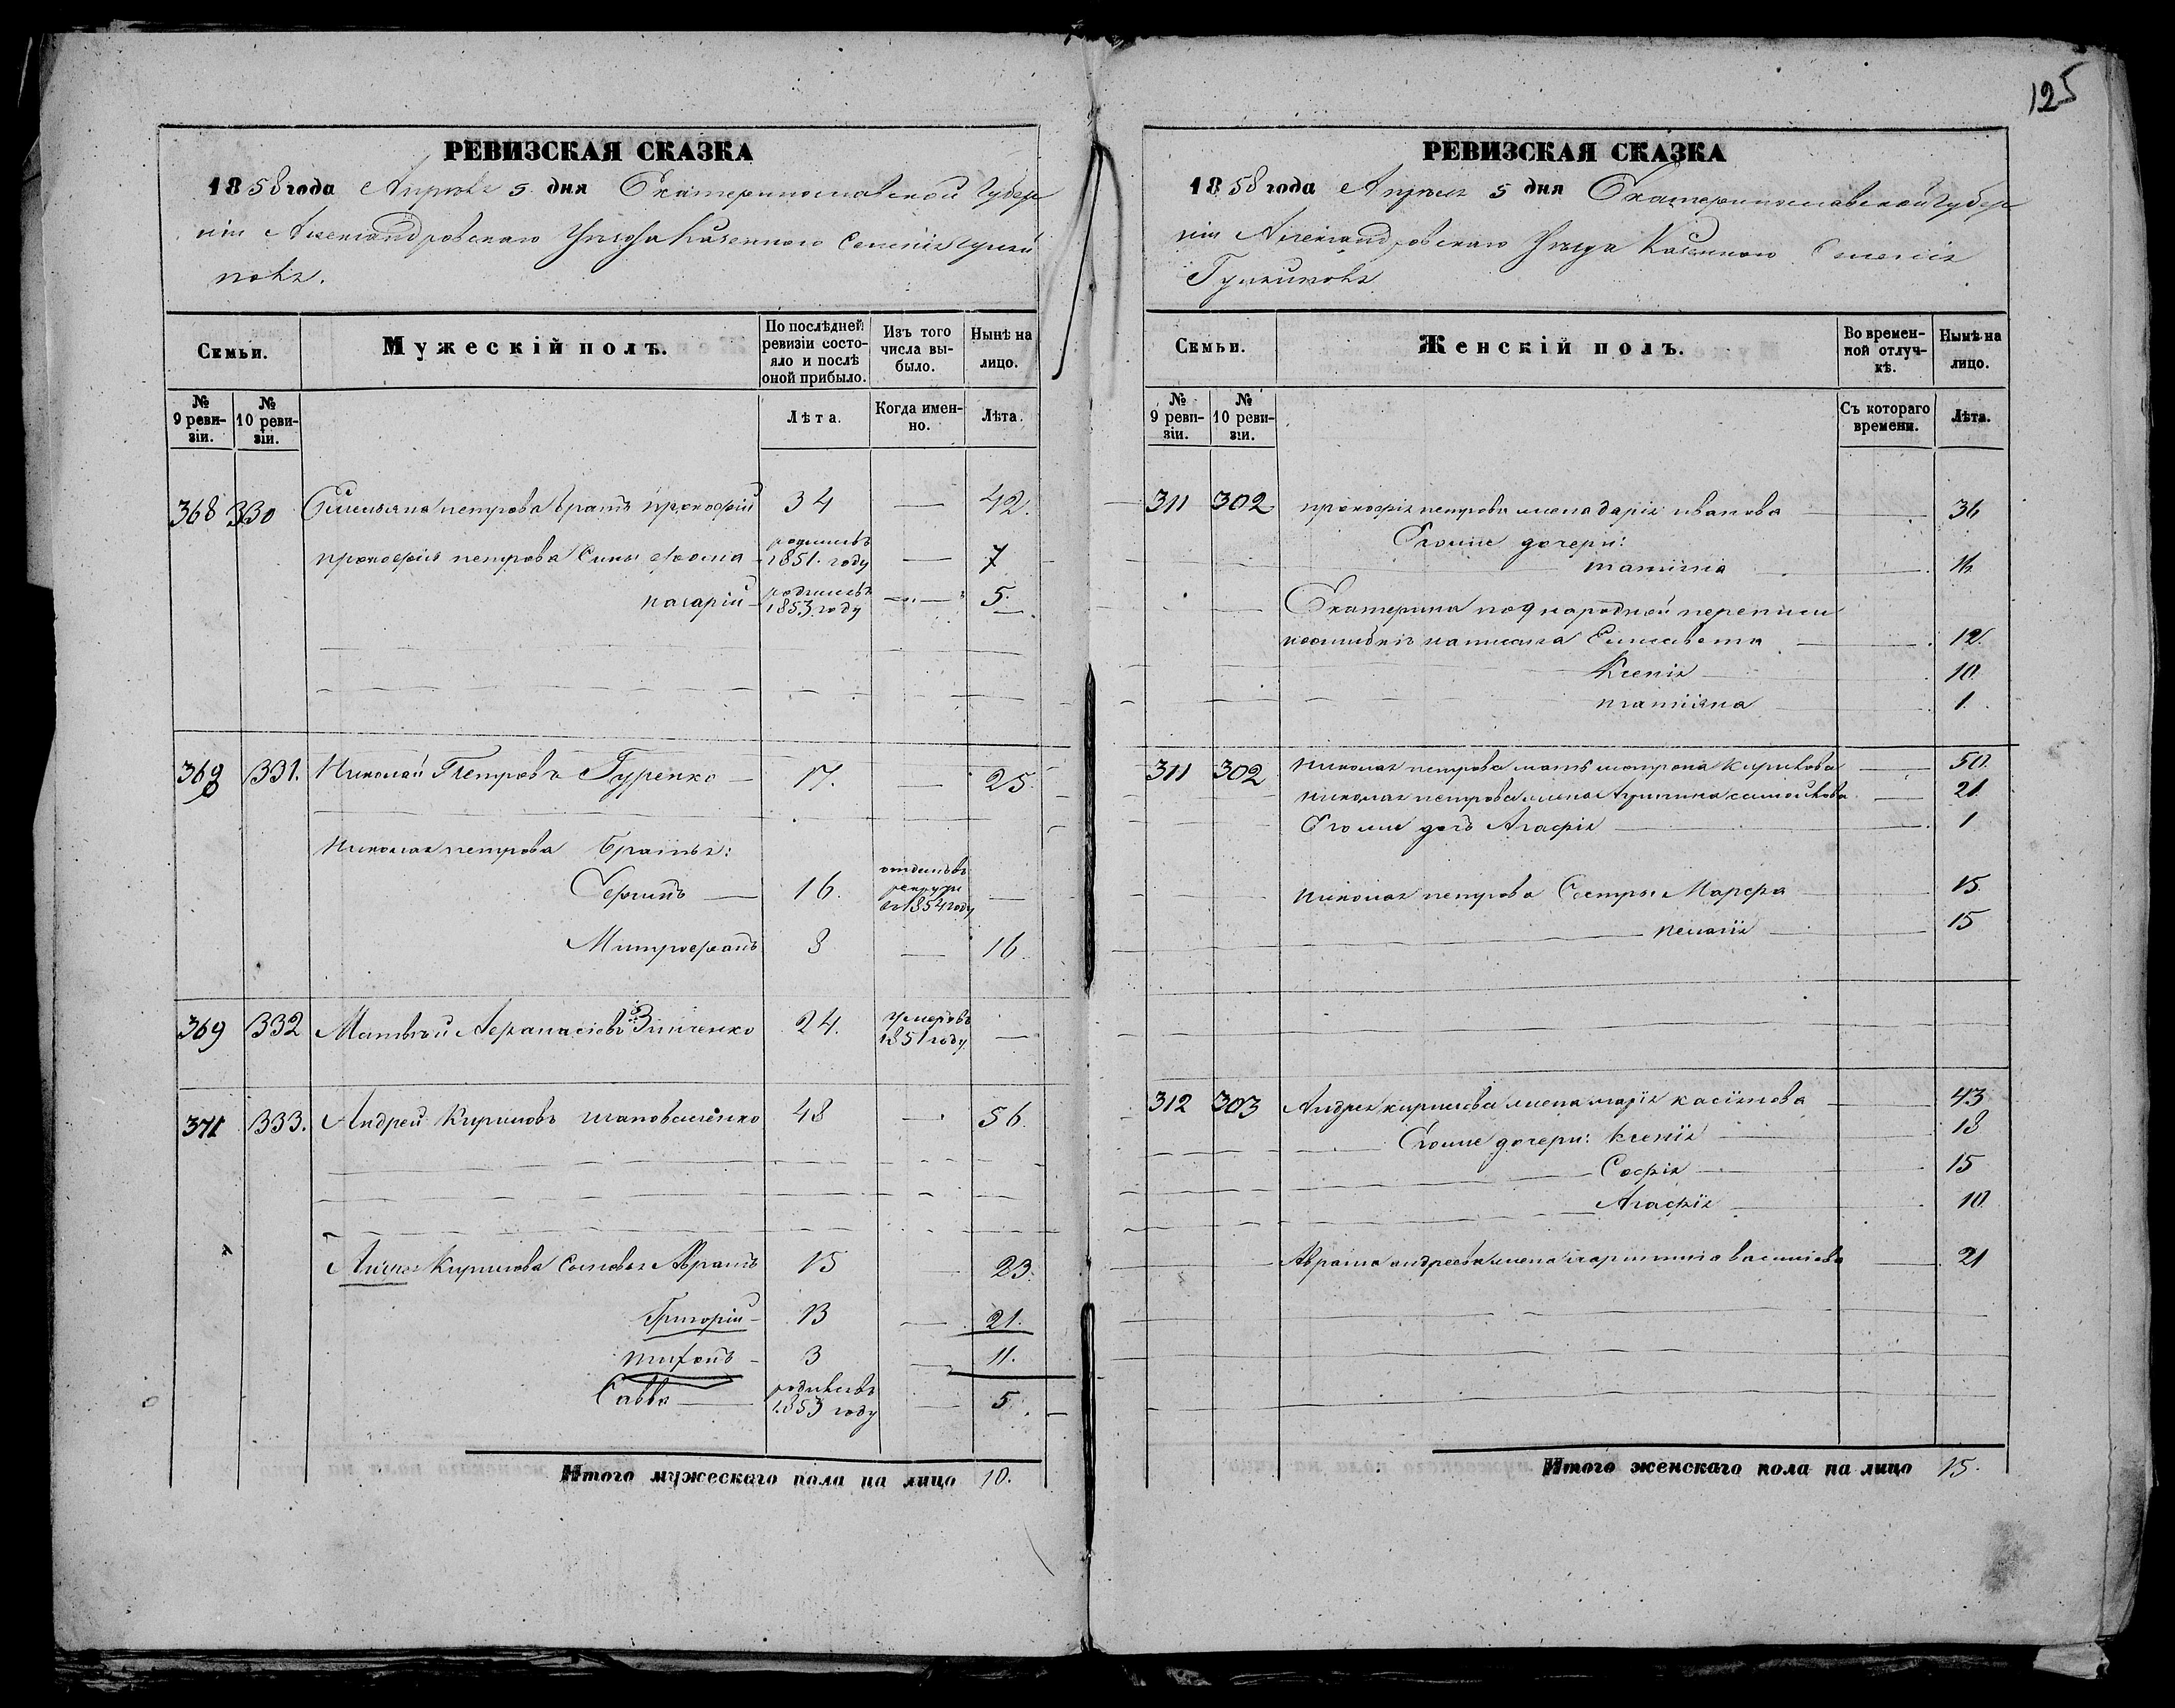 125
РЕВИЗСКАЯ СКАЗКА
1858 года Апреля 5 дня Екатеринославской Губер
нии Александровскаго Уезда Казеннаго Селения Гуляй
поля.
Семьи.
Мужескій полъ.
По послѣдней ревизіи состояло и послѣ оной прибыло.
Изъ того числа выбыло.
Нынѣ на лицо.
№ 9 ревизіи.
№ 10 ревизіи.
Лѣта.
Когда именно.
Лѣта.
368 330 Емельяна петрова братъ прокофій 34 — 42.
прокофия петрова Сины фома родился 1851. году — 7
назарій родился 1853 году — 5.
369 331. Николай Петровъ Гуренко — 17. — 25.
Николая петрова Братья:
Сергий — 16. отданъ въ рекруты въ 1854 году —
Митрофанъ 8 — 16.
369 332 Матвей Афанасіевъ Зинченко 24. умеръ въ 1851 году —
371 333. Андрей Кириловъ шаповаленко 48 — 56.
Кирилова Сыновья Абрамъ 15 — 23.
Григорій 13 — 21.
тифонъ 3 — 11.
Савва — родился 1853 году — 5.
Итого мужескаго пола на лицо 10.
РЕВИЗСКАЯ СКАЗКА
1858 года Апреля 5 дня Екатеринославской Губер
нии Александровскаго Уезда Казеннаго Селения
Гуляйполя
Семьи.
Женскій полъ.
Во временной отлучкѣ.
Нынѣ на лицо.
№ 9 ревизіи.
№ 10 ревизіи.
Съ котораго времени.
Лѣта.
311 302 прокофія петрова жена дарія иванова — 36
Егоже дочери:
татіяна — 16
Екатерина по 9 народной переписи
поошибкѣ написана Елисавета — 12.
Ксенія 10.
татіяна 1.
311 302 николая петрова мать матрона Кирилова — 50.
николая петрова жена самойлова — 21.
Егоже дочь Агафія — 1
николая петрова Сестры Марфа — 15.
пелагія — 15
312 303 Андрея кирилова жена марія касіянова — 43
Егоже дочери: ксенія — 18
Софія — 15
Агафія — 10
Абрама андреева жена василіева — 21
Итого женскаго пола на лицо 15.